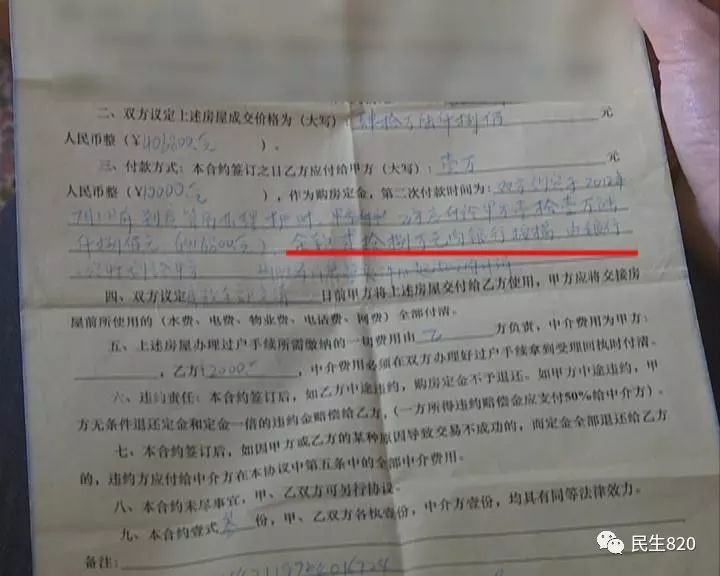 二、双方议定上述房屋成交价格为（大写）：肆拾万陆仟捌佰 元
人民币整（¥406800元 ）。
三、付款方式：本合约签订之日乙方应付给甲方（大写）：壹万 元
人民币整（¥10000元 ），作为购房定金，第二次付款时间为：双方约定于2012年
7月 日前到房管局办理 时， 乙方应付给甲方 拾壹万陆
仟捌佰元 余款 拾捌万元向银行按揭 由银行
四、双方议定 日前甲方将上述房屋交付给乙方使用，甲方应将交接房
屋前所使用的（水费、电费、物业费、电话费、网费）全部付清。
五、上述房屋办理过户手续所需缴纳的一切费用由 乙 方负责，中介费用为甲方：
，乙方12000元 ，中介费用必须在双方办理好过户手续拿到受理回执时付清。
六、违约责任：本合约签订后，如乙方中途违约，购房定金不予退还。如甲方中途违约，甲
方无条件退还定金和定金一倍的违约金赔偿给乙方，（一方所得违约赔偿金应支付50%给中介方）。
七、本合约签订后，如因甲方或乙方的某种原因导致交易不成功的，而定金全部退还给乙方
的，违约方应付给中介方在本协议中第五条中的全部中介费用。
八、本合约未尽事宜，甲、乙双方可另行协议。
九、本合约壹式叁 份，甲、乙双方各执壹份，中介方壹份，均具有同等法律效力。
备注：
民生820